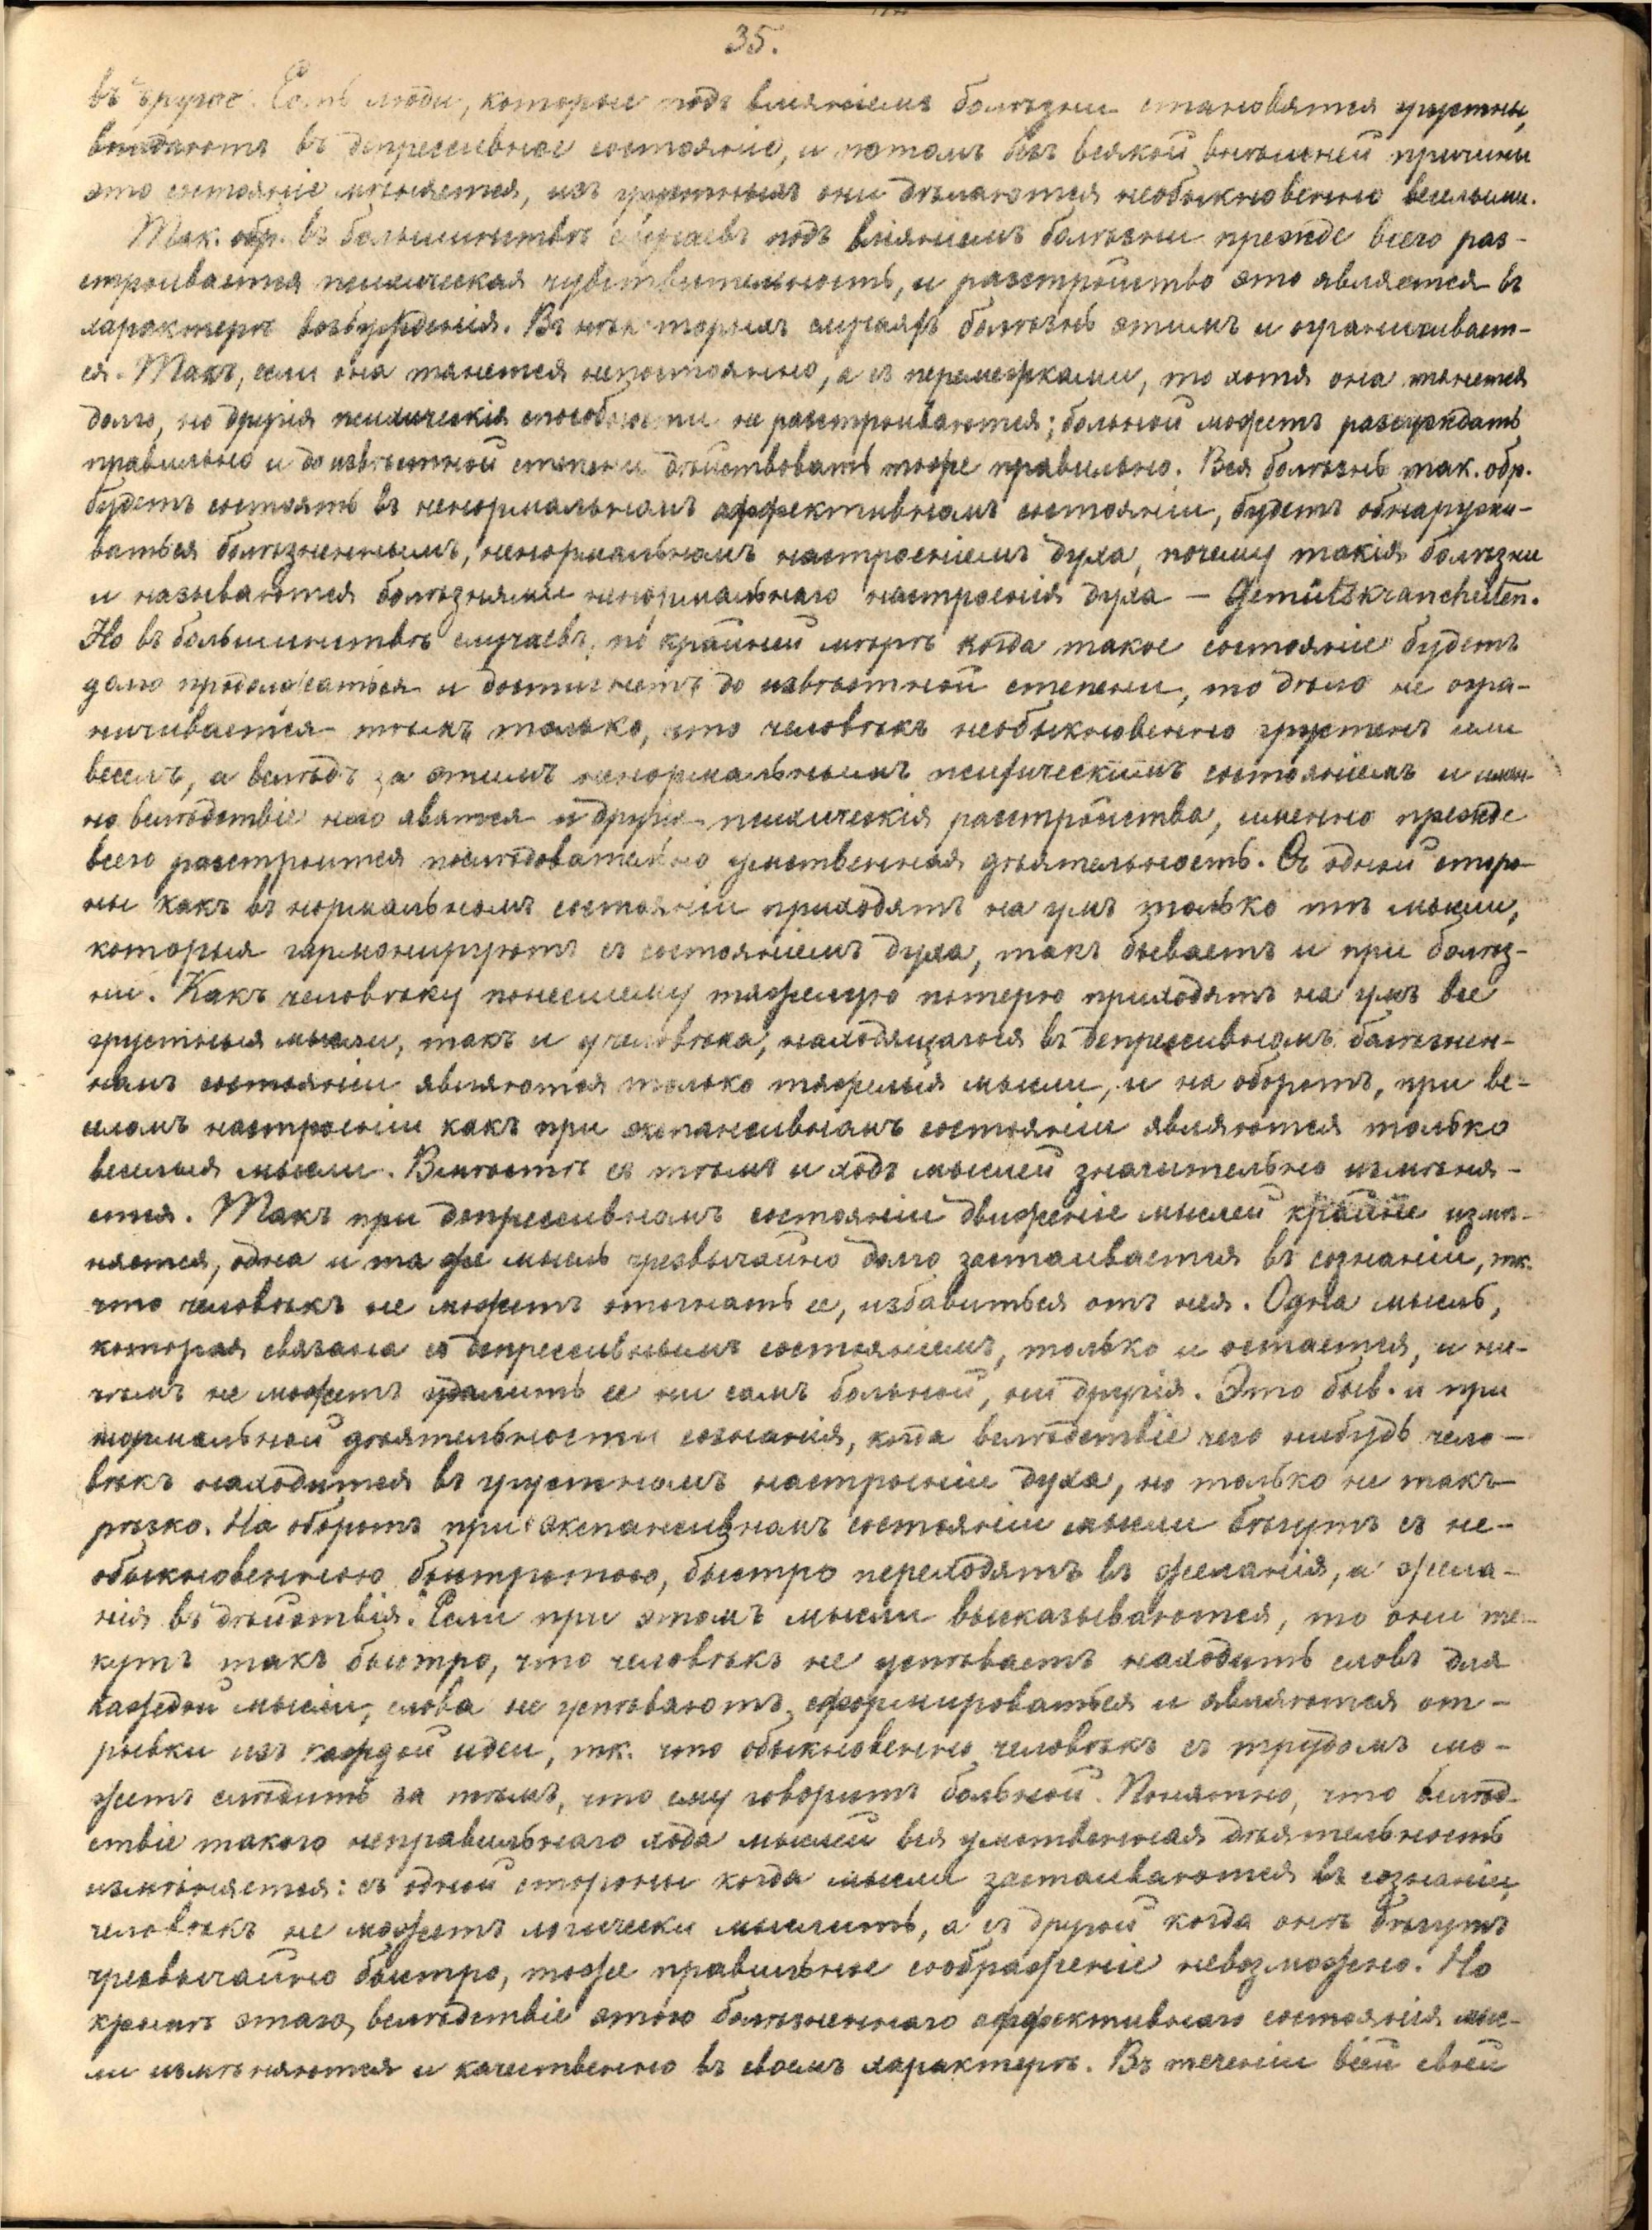 35.
въ другое. Есть люди, которые подъ вліяніемъ болѣзни становятся грустны,
впадаютъ въ депрессивное состояніе, и потомъ безъ всякой внѣшней причины
это состояніе мѣняется, изъ грустныхъ они дѣлаются необыкновенно веселыми.
Так. обр. въ большинствѣ случаевъ подъ вліяніемъ болѣзни прежде всего раз-
строивается психическая чувствительность, и разстройство это является въ
характерѣ возбужденія. Въ нѣкоторыхъ случаяхъ болѣзнь этимъ и ограничивает-
ся. Такъ, если она тянется непостоянно, а съ перемежками, то хотя она тянется
долго, но другія психическія способности не разстроиваются; больной можетъ разсуждать
правильно и до извѣстной степени дѣйствовать тоже правильно. Вся болѣзнь так. обр.
будетъ состоять въ ненормальномъ аффективномъ состояніи, будетъ обнаружи-
ваться болѣзненнымъ, ненормальномъ настроеніемъ духа, почему такія болѣзни
и называются болѣзнями ненормальнаго настроенія духа — Gemütskrancheiten.
Но въ большинствѣ случаевъ, по крайней мѣрѣ когда такое состояніе будетъ
долго продолжаться и достигнетъ до извѣстной степени, то дѣло не огра-
ничивается тѣмъ только, что человѣкъ необыкновенно грустенъ или
веселъ, а вслѣдъ за этимъ ненормальнымъ психическимъ состояніемъ и имен-
но вслѣдствіе него явятся и другія психическія разстройства, именно прежде
всего разстроится послѣдовательно умственная дѣятельность. Съ одной сторо-
ны какъ въ нормальномъ состояніи приходятъ на умъ только тѣ мысли,
которыя гармонируютъ съ состояніемъ духа, такъ бываетъ и при болѣз-
ни. Какъ человѣку понесшему тяжелую потерю приходятъ на умъ все
грустныя мысли, такъ и у человѣка, находящагося въ депрессивномъ болѣзнен-
номъ состояніи являются только тяжелыя мысли, и на оборотъ, при ве-
селомъ настроеніи какъ при экспансивномъ состояніи являются только
веселыя мысли. Вмѣстѣ съ тѣмъ и ходъ мыслей значительно измѣня-
ется. Такъ при депрессивномъ состояніи движеніе мыслей крайне измѣ-
няется, одна и та же мысль чрезвычайно долго застаивается въ сознаніи, тк.
что человѣкъ не можетъ отогнать ее, избавиться отъ нея. Одна мысль,
которая связана съ депрессивнымъ состояніемъ, только и остается, и ни-
чѣмъ не можетъ удалить ее ни самъ больной, ни другія. Это быв. и при
нормальной дѣятельности сознанія, когда вслѣдствіе чего нибудь чело-
вѣкъ находится въ грустномъ настроеніи духа, но только не такъ
рѣзко. На оборотъ при экспансивномъ состояніи мысли бѣгутъ съ не-
обыкновенною быстротою, быстро переходятъ въ желанія, а жела-
нія въ дѣйствія. Если при этомъ мысли высказываются, то они те-
кутъ такъ быстро, что человѣкъ не успѣваетъ находить словъ для
каждой мысли, слова не успѣваютъ сформироваться и являются от-
рывки изъ каждой идеи, тк. что обыкновенно человѣкъ съ трудомъ мо-
жетъ слѣдить за тѣмъ, что ему говоритъ больной. Понятно, что вслѣд-
ствіе такого неправильнаго хода мыслей вся умственная дѣятельность
измѣняется: съ одной стороны когда мысли застаиваются въ сознаніи,
человѣкъ не можетъ логически мыслить, а съ другой когда онѣ бѣгутъ
чрезвычайно быстро, тоже правильное соображеніе невозможно. Но
кромѣ этаго, вслѣдствіе этого болѣзненнаго аффективнаго состоянія мыс-
ли измѣняются и качественно въ своемъ характерѣ. Въ теченіи всей своей